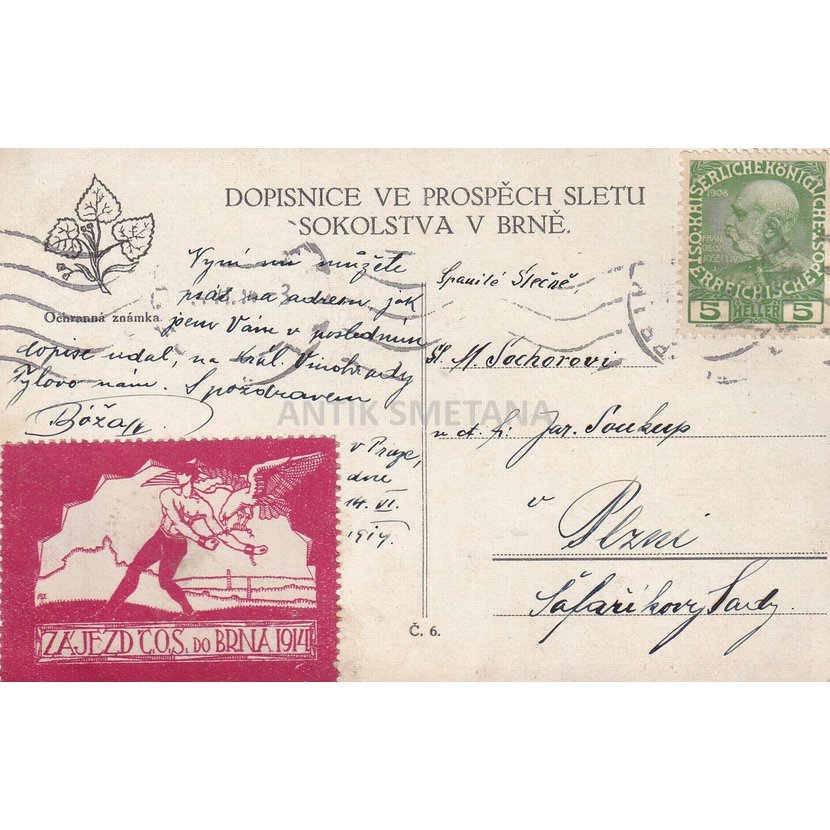 DOPISNICE VE PROSPĚCH SLETU
SOKOLSTVA V BRNĚ.
Ochranná známka.
Nyní mi můžete
psát na adresu, jak
jsem Vám v posledním
dopise udal, na Král. Vinohrady
Tylovo nám. S pozdravem
Bóža
v Praze,
dne
14. VI.
1914.
Spanilé Slečně
Sl. M. Sochorovi
u ct. p. Jar. Soukup
v Plzni
Šafaříkovy Sady.
1908
KAISERLICHE KÖNIGLICHE
ÖSTERREICHISCHE POST
5 HELLER 5
ZÁJEZD Č.O.S. DO BRNA 1914
Č. 6.
ANTIK SMETANA